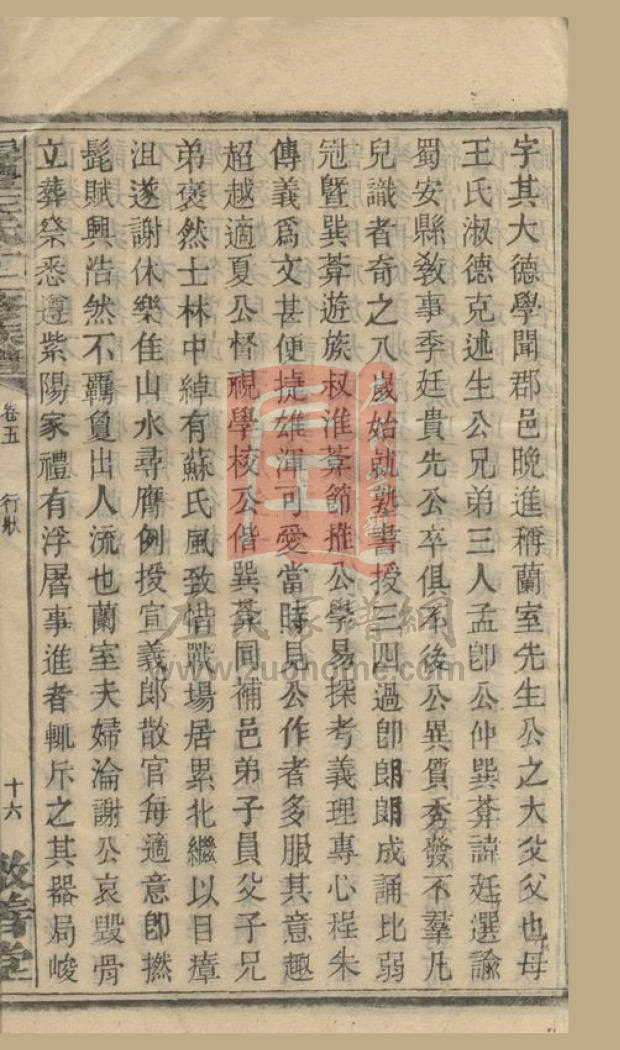 字其大德學聞郡邑晚進稱蘭室先生公之大父父也母
王氏淑德克述生公兄弟三人孟卽公仲巽葊諱廷選諭
蜀安縣教事季廷貴先公卒俱不後公異質秀發不羣凡
兒識者奇之八歲始就塾書授三四過卽朗朗成誦比弱
冠曁巽葊遊族叔淮葊節推公學易探考義理專心程朱
傳義爲文甚便捷雄渾可愛當時見公作者多服其意趣
超越適夏公督視學校公偕巽葊同補邑弟子員父子兄
弟褒然士林中綽有蘇氏風致惜戰場居累北繼以目瘴
沮遂謝休樂佳山水尋膺例授宣義郎散官每適意卽撚
髭賦興浩然不覊敻出人流也蘭室夫婦淪謝公哀毀骨
立葬祭悉遵紫陽家禮有浮屠事進者輒斥之其器局峻
卷五
行狀
十六
左氏家譜網
www.zuohome.com